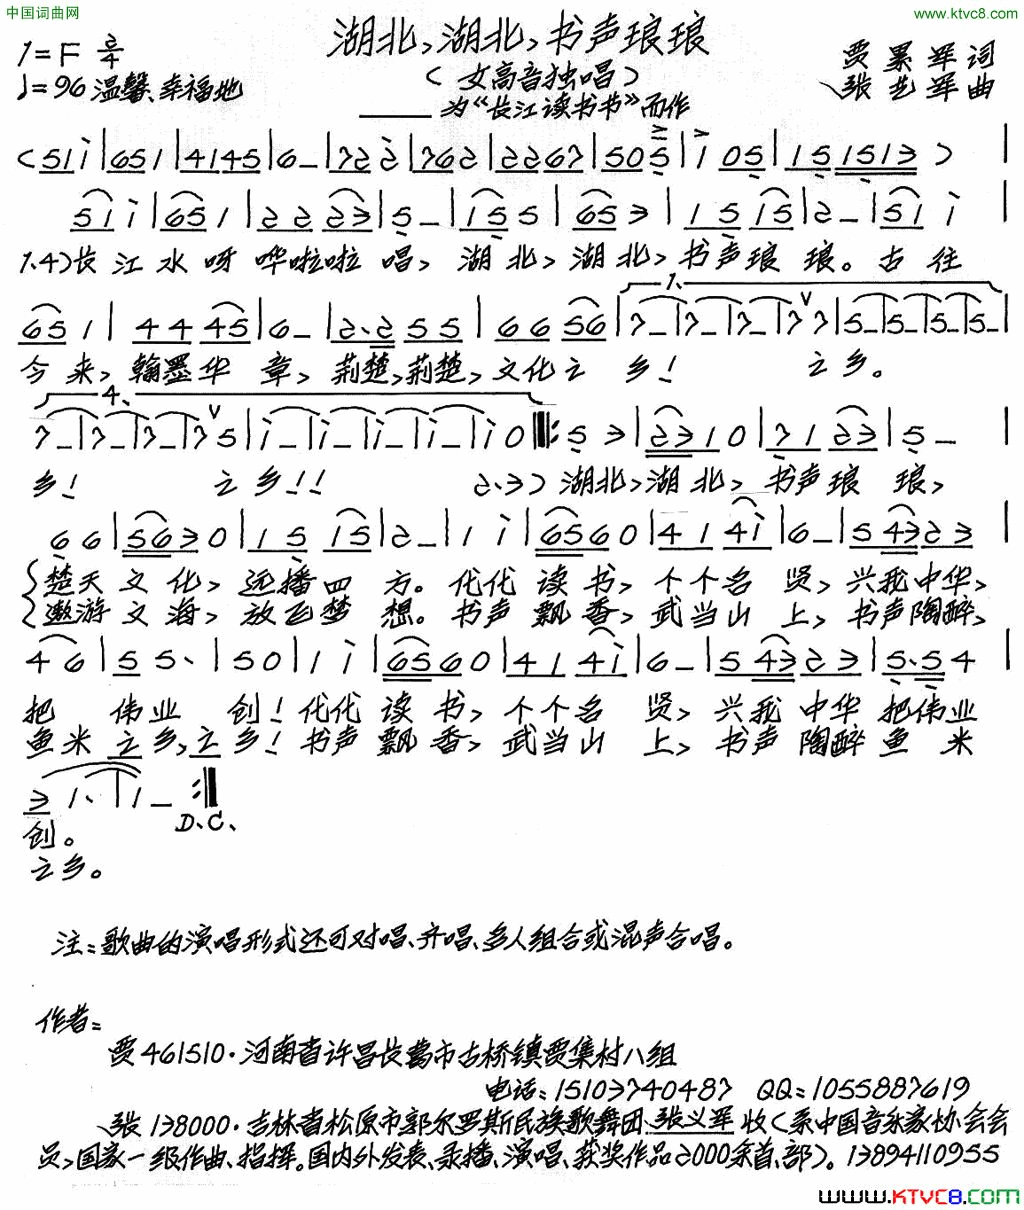 中国词曲网
www.ktvc8.com
湖北,湖北,书声琅琅
1=F 2/4
♩=96 温馨、幸福地
(女高音独唱)
——为“长江读书节”而作
贾累军 词
张艺军 曲
(51i|651|4145|6_|722|762|2267|5055|i05|151513)|
51i|651|2223|5_|155|653|1515|2_|51i|
1.4)长江水呀哗啦啦唱,湖北,湖北,书声琅琅。古往
651|4445|6_|2.255|6656|7_|7_|7_|77|5_|5_|5_|5_|
今来,翰墨华章,荆楚,荆楚,文化之乡!之乡。
7_|7_|7_|75|i_|i_|i_|i_|i0:53|2310|7123|5_|
乡!之乡!!2.3)湖北,湖北,书声琅琅,
66|5630|1515|2_|1i|6560|414i|6_|54323|
楚天文化,远播四方。代代读书,个个名贤,兴我中华,
遨游文海,放飞梦想。书声飘香,武当山上,书声陶醉,
46|55.|50|1i|6560|414i|6_|54323|5.54|
把伟业创!代代读书,个个名贤,兴我中华把伟业
鱼米之乡,之乡!书声飘香,武当山上,书声陶醉鱼米
31.|1_:|
D.C.
创。
之乡。
注:歌曲的演唱形式还可对唱、齐唱、多人组合或混声合唱。
作者:
贾461510·河南省许昌长葛市古桥镇贾集村八组
电话:15103740487 QQ:1055887619
张138000·吉林省松原市郭尔罗斯民族歌舞团:张义军收(系中国音乐家协会会
员,国家一级作曲、指挥。国内外发表、录播、演唱、获奖作品2000余首、部)。13894110955
www.KTVC8.com